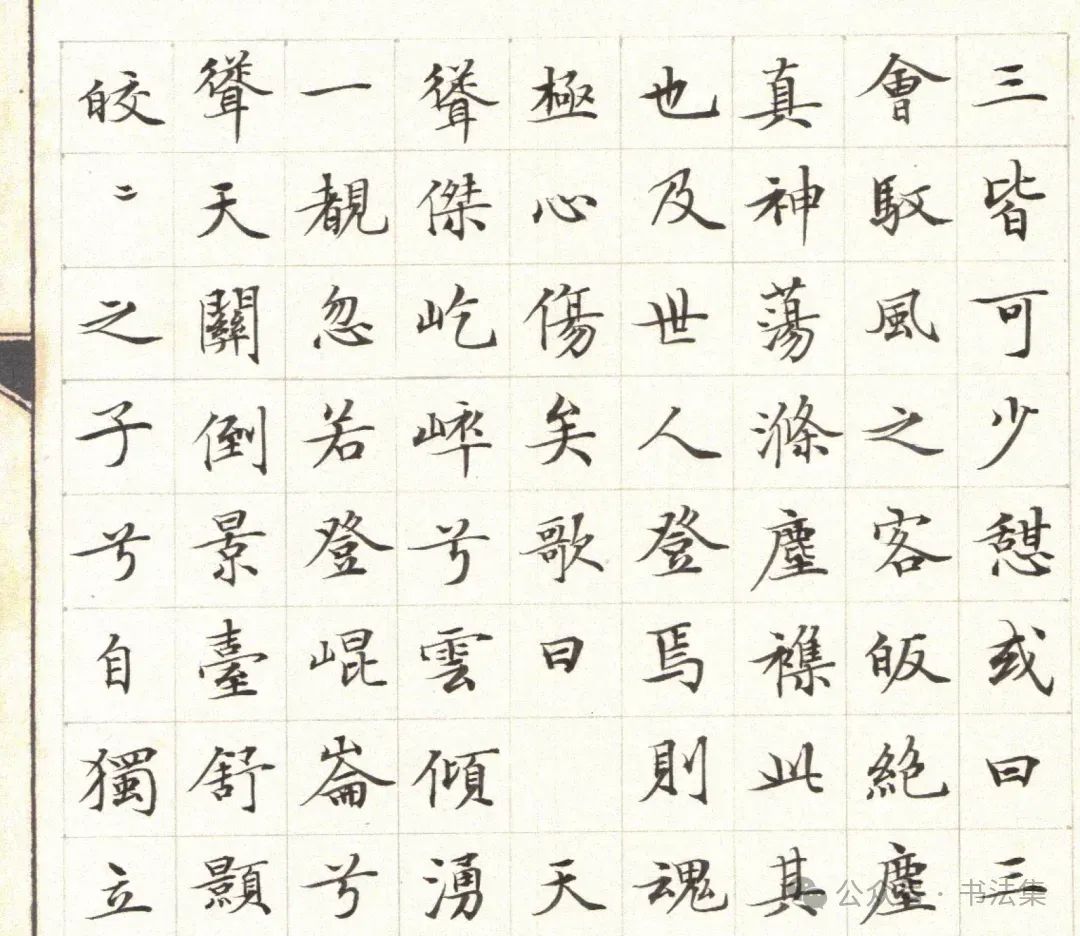 三皆可少憇或曰三
會馭風之客皈絶塵
真神蕩滌塵襟此其
也及世人登焉則魂
極心傷矣歌曰 天
聳傑屹崪兮雲傾湧
一覩忽若登崐崙兮
聳天關倒景臺舒顥
皎〻之子兮自獨立
公众号·书法集